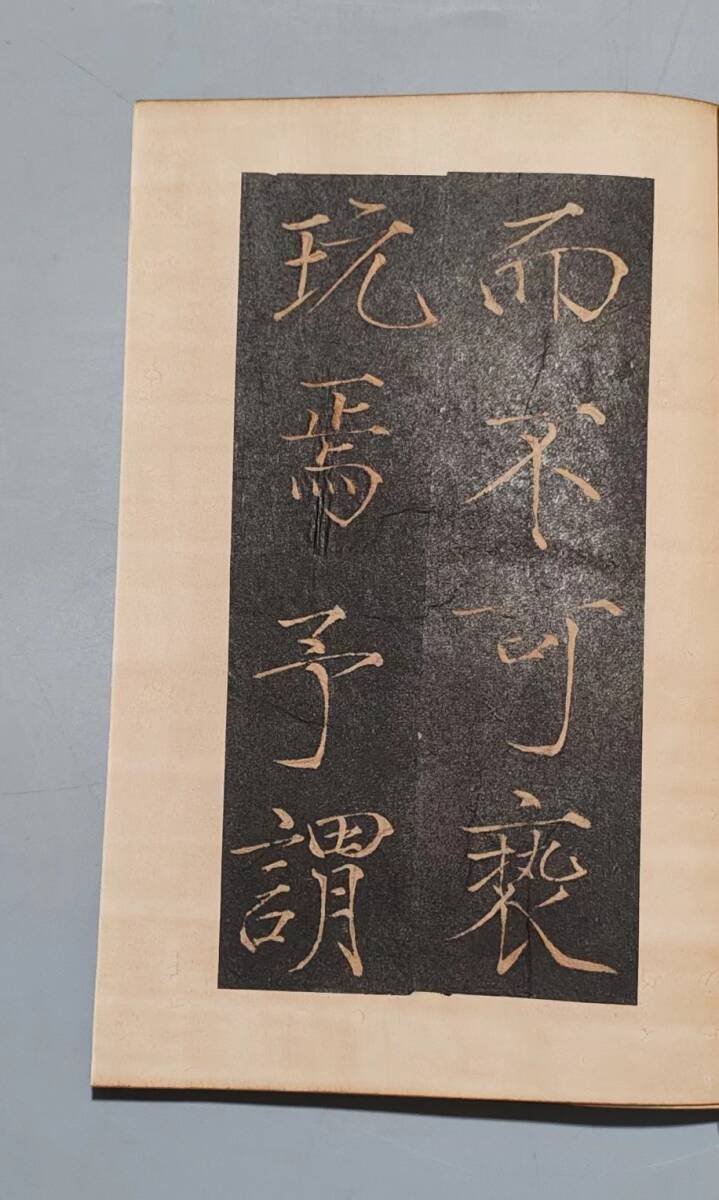 而不可亵
玩焉予謂